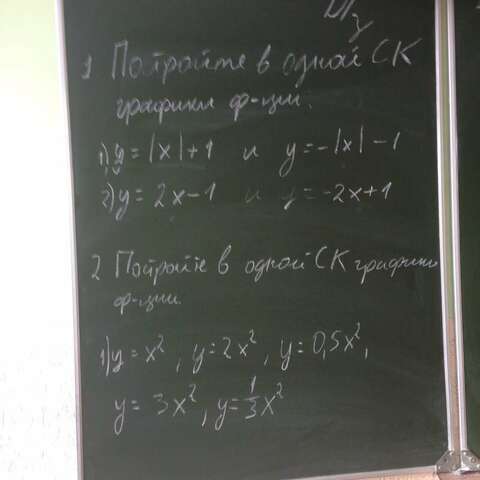 D/з
1 Постройте в одной СК
графики ф-ции:
1) y = |x|+1 и y = -|x|-1
2) y = 2x-1 и y = -2x+1
2 Постройте в одной СК графики
ф-ции
1) y = x², y = 2x², y = 0,5x²,
y = 3x², y = 1/3 x²